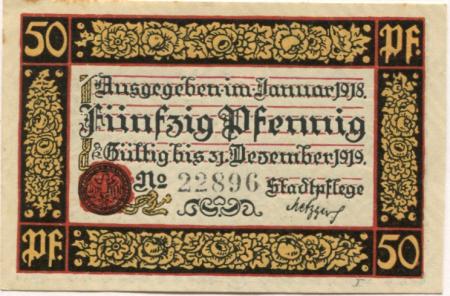 50 Pf.
Ausgegeben im Januar 1918.
Fünfzig Pfennig
Gültig bis 31. Dezember 1919.
No 22896 Stadtpflege
Metzger
Pf. 50